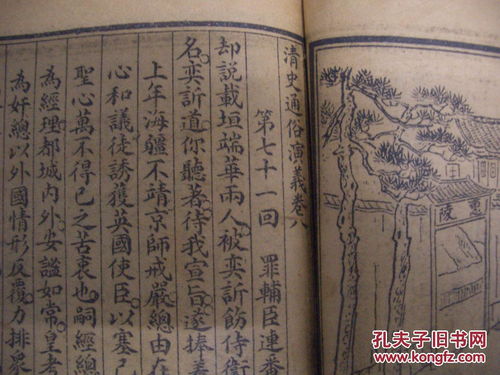 清史通俗演義卷八
第七十一回　罪輔臣連番
却說載垣端華兩人被奕訢飭侍衛
名奕訢道你聽著待我宣旨遂捧
上年海疆不靖京師戒嚴總由在
心和議徒誘獲英國使臣以塞己
聖心萬不得已之苦衷也嗣經總
為經理都城內外安謐如常皇考
為奸總以外國情形反覆力排衆
惠陵
孔夫子旧书网
www.kongfz.com